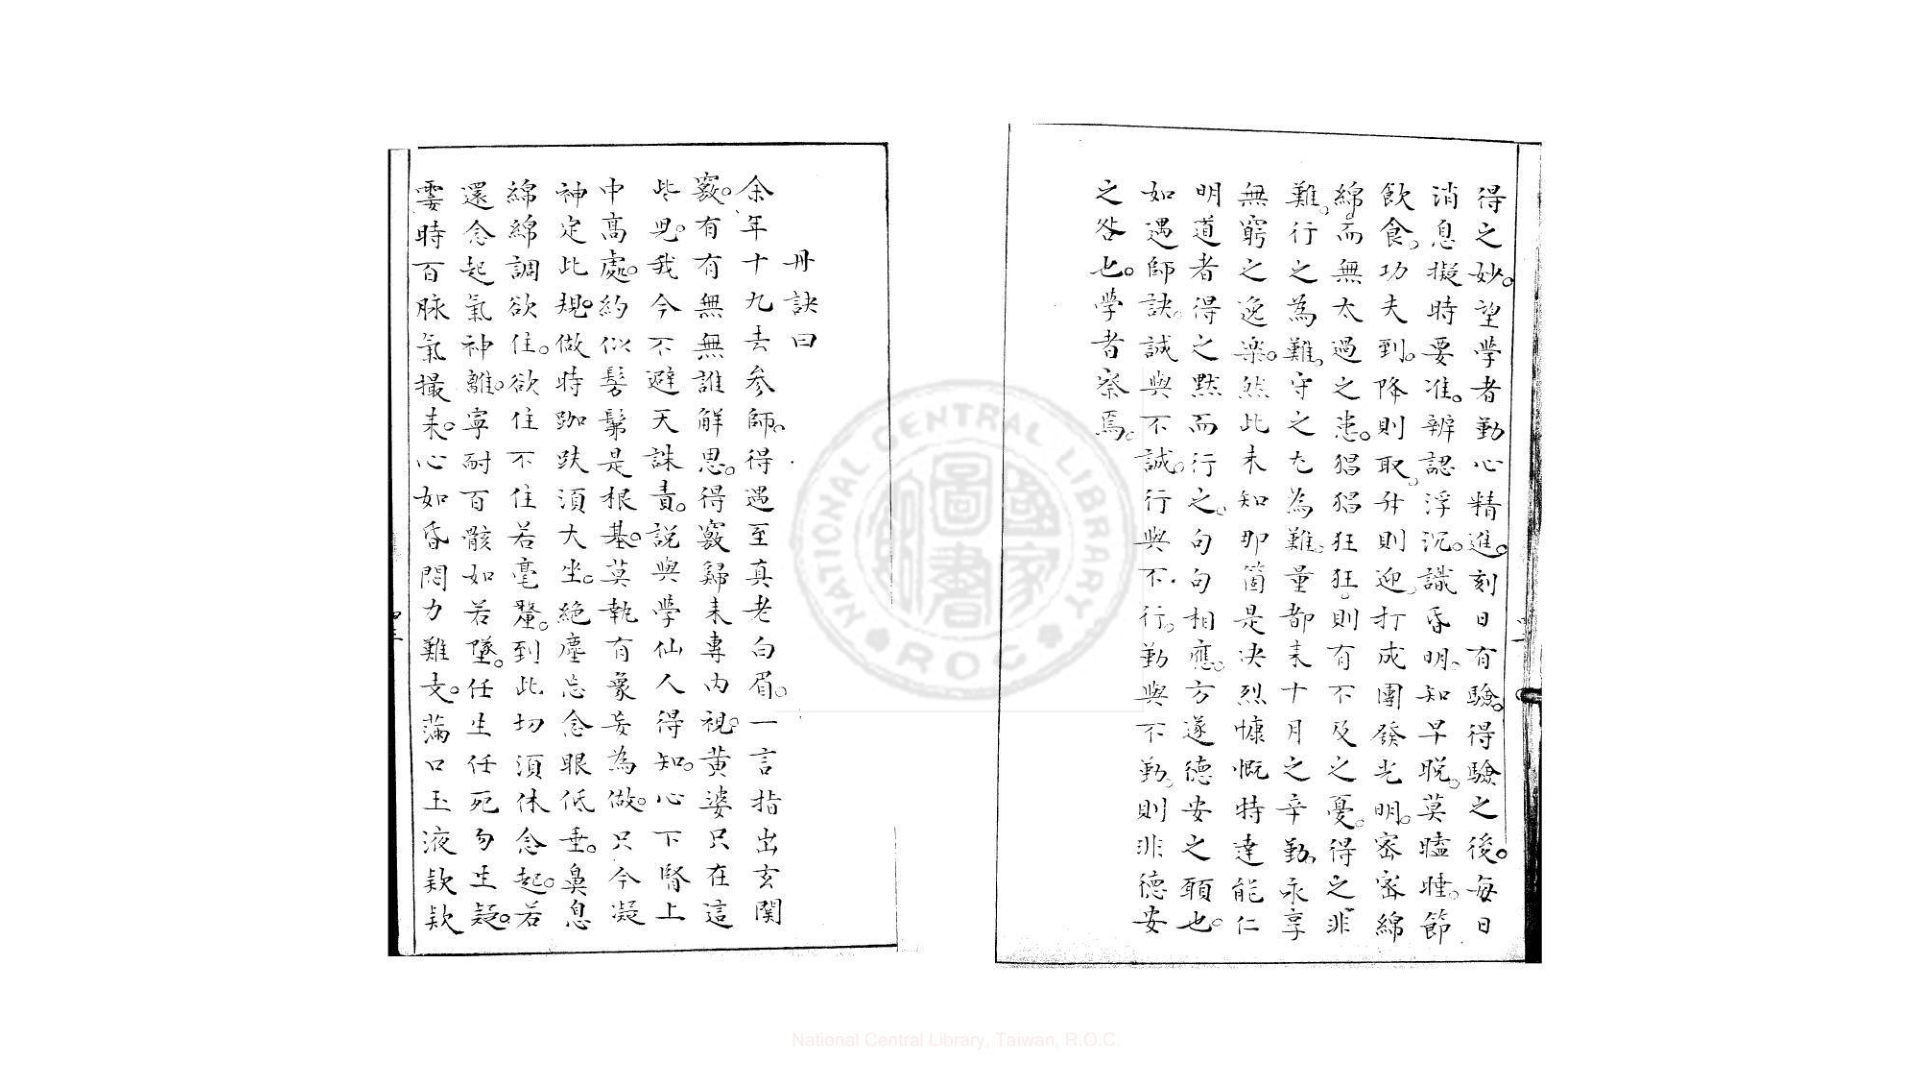 得之妙。望學者勤心精進。刻日有驗。得驗之後。每日
消息擬時要准。辨認浮沉。識昏明。知早晚。莫瞌睡。節
飲食。功夫到。降則取。升則迎。打成團發光明。密密綿
綿。而無太過之患。猖猖狂狂。則有不及之憂。得之非
難。行之為難。守之尤為難。量都来十月之辛勤。永享
無窮之逸楽。然此未知那箇是决烈慷慨特達能仁
明道者得之黙而行之。句句相應。方遂德安之願也。
如遇師訣。誠與不誠。行與不行。勤與不勤。則非德安
之咎也。學者察焉。
丹訣曰
余年十九去参師。得遇至真老白眉。一言指出玄関
竅。有有無無誰解思。得竅歸来専内視。黄婆只在這
些児。我今不避天誅責。説與學仙人得知。心下腎上
中高處。約似髣髴是根基。莫執有象妄為做。只今凝
神定此規。做時跏趺須大坐。絶塵忘念眼低垂。鼻息
綿綿調欲住。欲住不住若毫釐。到此切須休念起。若
還念起氣神離。寧耐百骸如若墜。任生任死勿生疑。
霎時百脉氣撮来。心如昏悶力難支。滿口玉液欵欵
National Central Library, Taiwan, R.O.C.
NATIONAL CENTRAL LIBRARY
R.O.C
國家圖書館